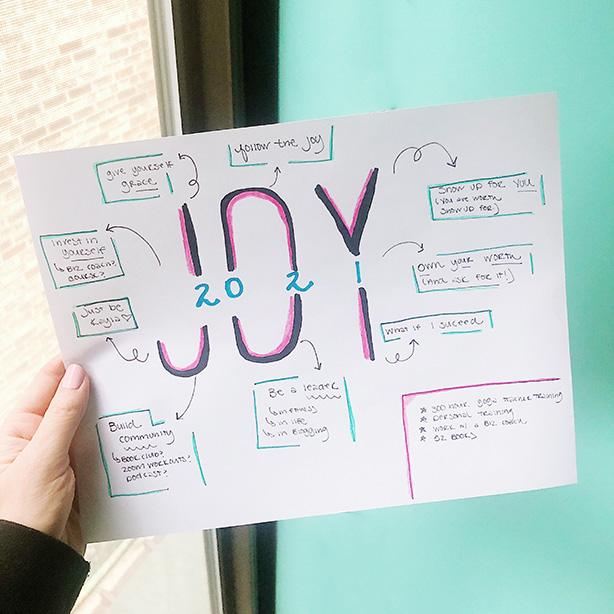 follow the joy
give yourself
grace
JOY
2021
Show up for you
(you are worth
show up for!)
Invest in
yourself
↳ Biz coach?
course?
own your worth
(And ask for it!)
Just be
Kayla♡
What if I suceed
Be a leader
↳ in fitness
↳ in life
↳ in blogging
Build
community
↳ Book club?
zoom workouts?
podcast?
* 300 hour yoga teacher training
* personal training
* work w/ a biz coach
* Biz Books